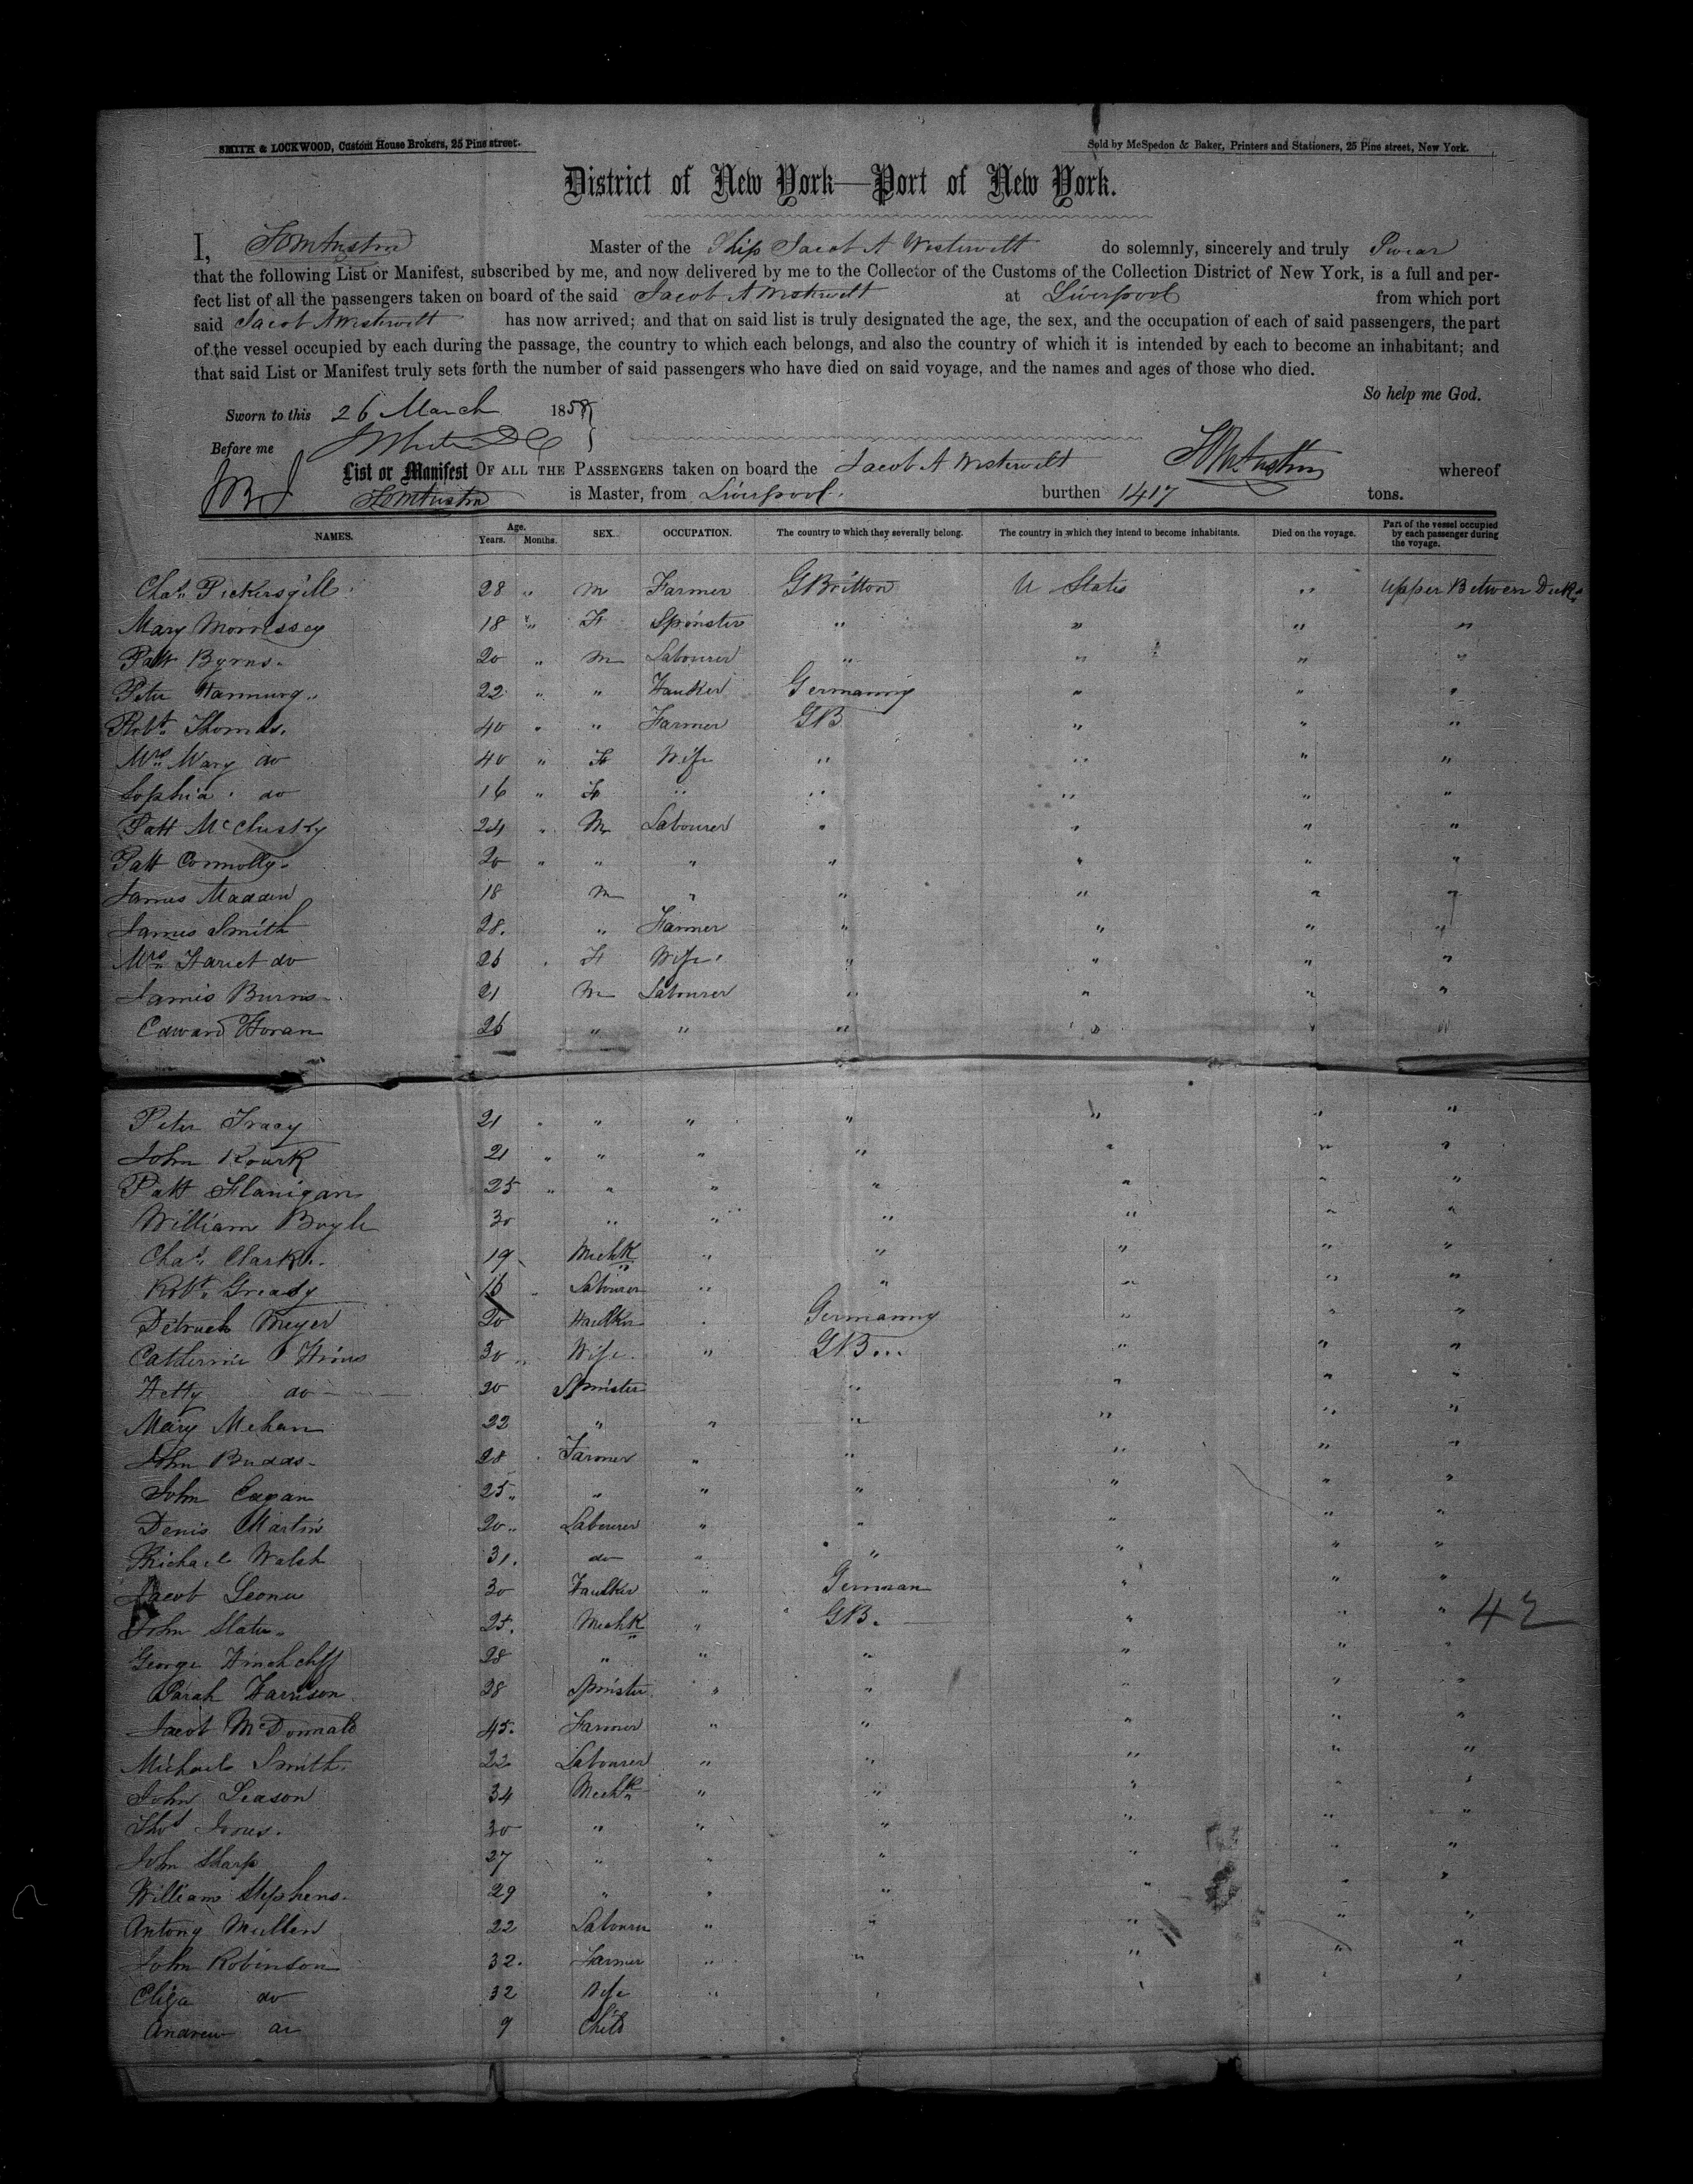 SMITH & LOCKWOOD, Custom House Brokers, 25 Pine street.
Sold by McSpedon & Baker, Printers and Stationers, 25 Pine street, New York.
District of New York—Port of New York.
I, Master of the Ship Jacob A Westervelt do solemnly, sincerely and truly Swear
that the following List or Manifest, subscribed by me, and now delivered by me to the Collector of the Customs of the Collection District of New York, is a full and per-
fect list of all the passengers taken on board of the said Jacob A Westervelt at Liverpool from which port
said Jacob A Westervelt has now arrived; and that on said list is truly designated the age, the sex, and the occupation of each of said passengers, the part
of the vessel occupied by each during the passage, the country to which each belongs, and also the country of which it is intended by each to become an inhabitant; and
that said List or Manifest truly sets forth the number of said passengers who have died on said voyage, and the names and ages of those who died.
So help me God.
Sworn to this 26 March 1858
Before me
List or Manifest OF ALL THE PASSENGERS taken on board the Jacob A Westervelt whereof
is Master, from Liverpool. burthen 1417 tons.
NAMES. Age. Years. Months. SEX. OCCUPATION. The country to which they severally belong. The country in which they intend to become inhabitants. Died on the voyage. Part of the vessel occupied by each passenger during the voyage.
Chas. Pickersgill 28 " M Farmer G Britton U States " Upper Between Decks
Mary Morrissey 18 " F Spinster " " " "
Patt Byrns 20 " M Labourer " " " "
Peter 22 " " Germanny " " "
Robt. Thomas. 40 " " Farmer GB " " "
Mrs Mary do 40 " F Wife " " " "
Sophia do 16 " F " " " " "
Patt McClusky 24 " M Labourer " " " "
Patt Connolly. 20 " " " " " " "
James Madden 18 M " " " " "
James Smith 28. " Farmer " " " "
Mrs Hariet do 26 " F Wife " " " "
James Burns 21 M Labourer " " " "
Edward Horan 26 " " " " " "
Peter Tracy 21 " " " " " " "
John Rourk 21 " " " " " " "
Patt Flanigan 25 " " " " " " "
William Boyle 30 " " " " " "
Chas. Clark 19 Mechk " " " " "
Robt. Gready 16 Labourer " " " " "
Meyer 20 " Germanny " " "
Catherine 30 " Wife " GB " " "
Hetty do 20 Spinster " " " "
Mary Mehan 22 " " " " " "
John Budds 28 Farmer " " " " "
John Eagan 25 " " " " " " "
Denis Martin 20 " Labourer " " " " "
Michael Walsh 31. do " " " " "
Jacob 30 " German " " "
John Slater 25. Mechk " GB. " " " 42
George Hinchcliff 28 " " " " " "
Sarah Harrison 28 Spinster " " " " "
Jacob McDonnald 45. Farmer " " " " "
Michael Smith. 22 Labourer " " " " "
John Leason 34 Mechk " " " " "
Thos Jones. 30 " " " " " "
John Sharp 27 " " " " " "
William Stephens. 29 " " " " " "
Antony Mullen 22 Labourer " " " " "
John Robinson 32. Farmer " " " " "
Eliza do 32 Wife " " " " "
Andrew do 9 Child